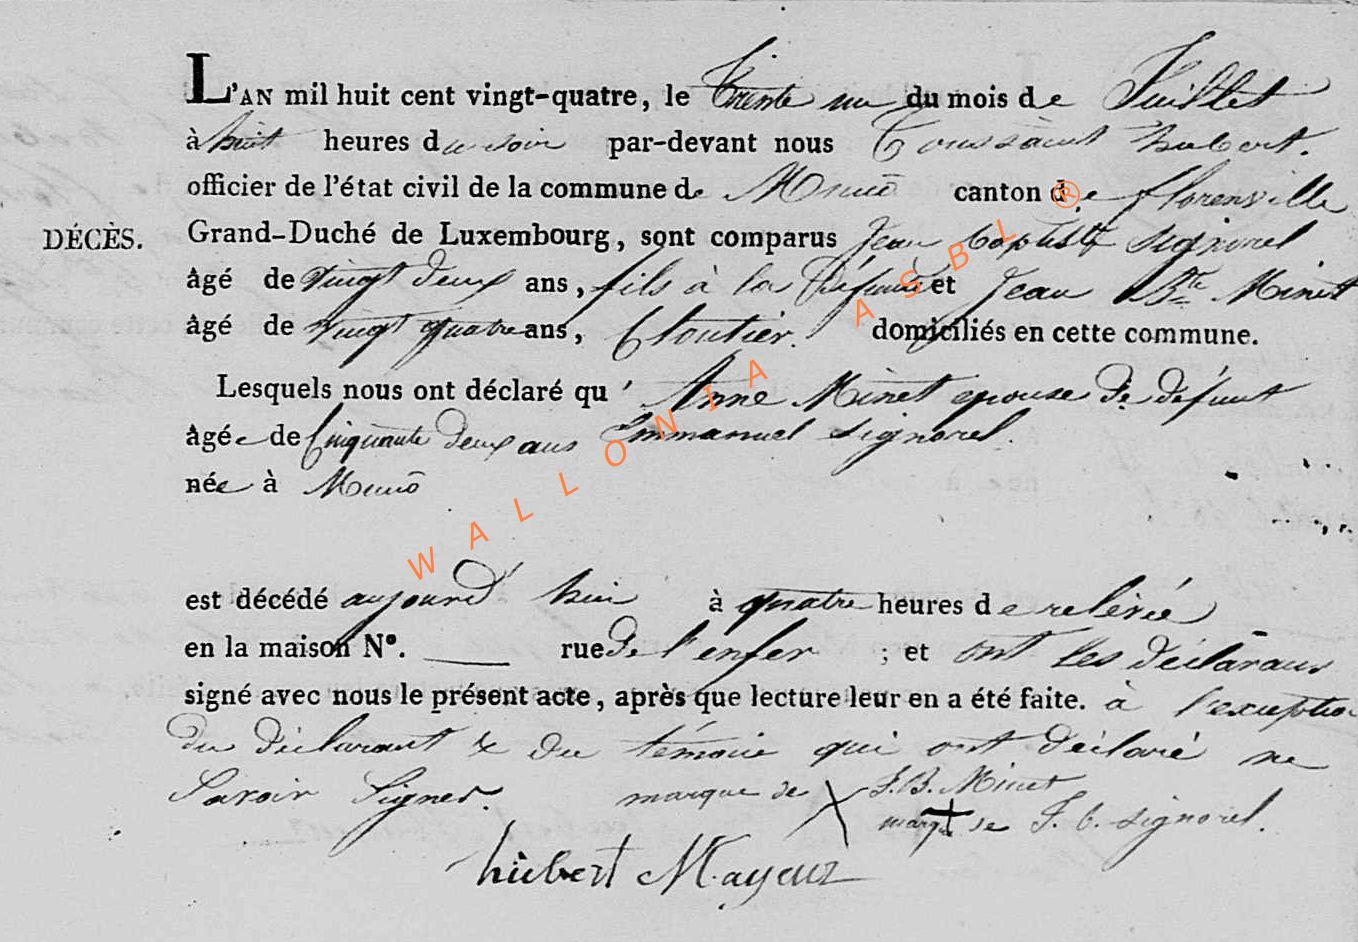 L'AN mil huit cent vingt-quatre, le trente un du mois de Juillet
à huit heures du soir par-devant nous Toussaint hubert.
officier de l'état civil de la commune de Munō canton de florenville
DÉCÈS. Grand-Duché de Luxembourg, sont comparus Jean baptiste Signorel
âgé de vingt deux ans, fils à la Défunte et Jean Bte Minet
âgé de vingt quatre ans, Cloutier. domiciliés en cette commune.
Lesquels nous ont déclaré qu' Anne Minet epouse de défunt
âgée de Cinquante deux ans Emmanuel Signorel.
née à Munō
est décédé aujourd'hui à quatre heures de relevée
en la maison N°. — rue de l'enfer ; et ont les déclarans
signé avec nous le présent acte, après que lecture leur en a été faite. à l'exception
du déclarant & du témoin qui ont déclaré ne
Savoir Signer. marque de X J. B. Minet
marque + de J. b. Signorel.
hubert Mayeur
WALLONIA ASBL ®